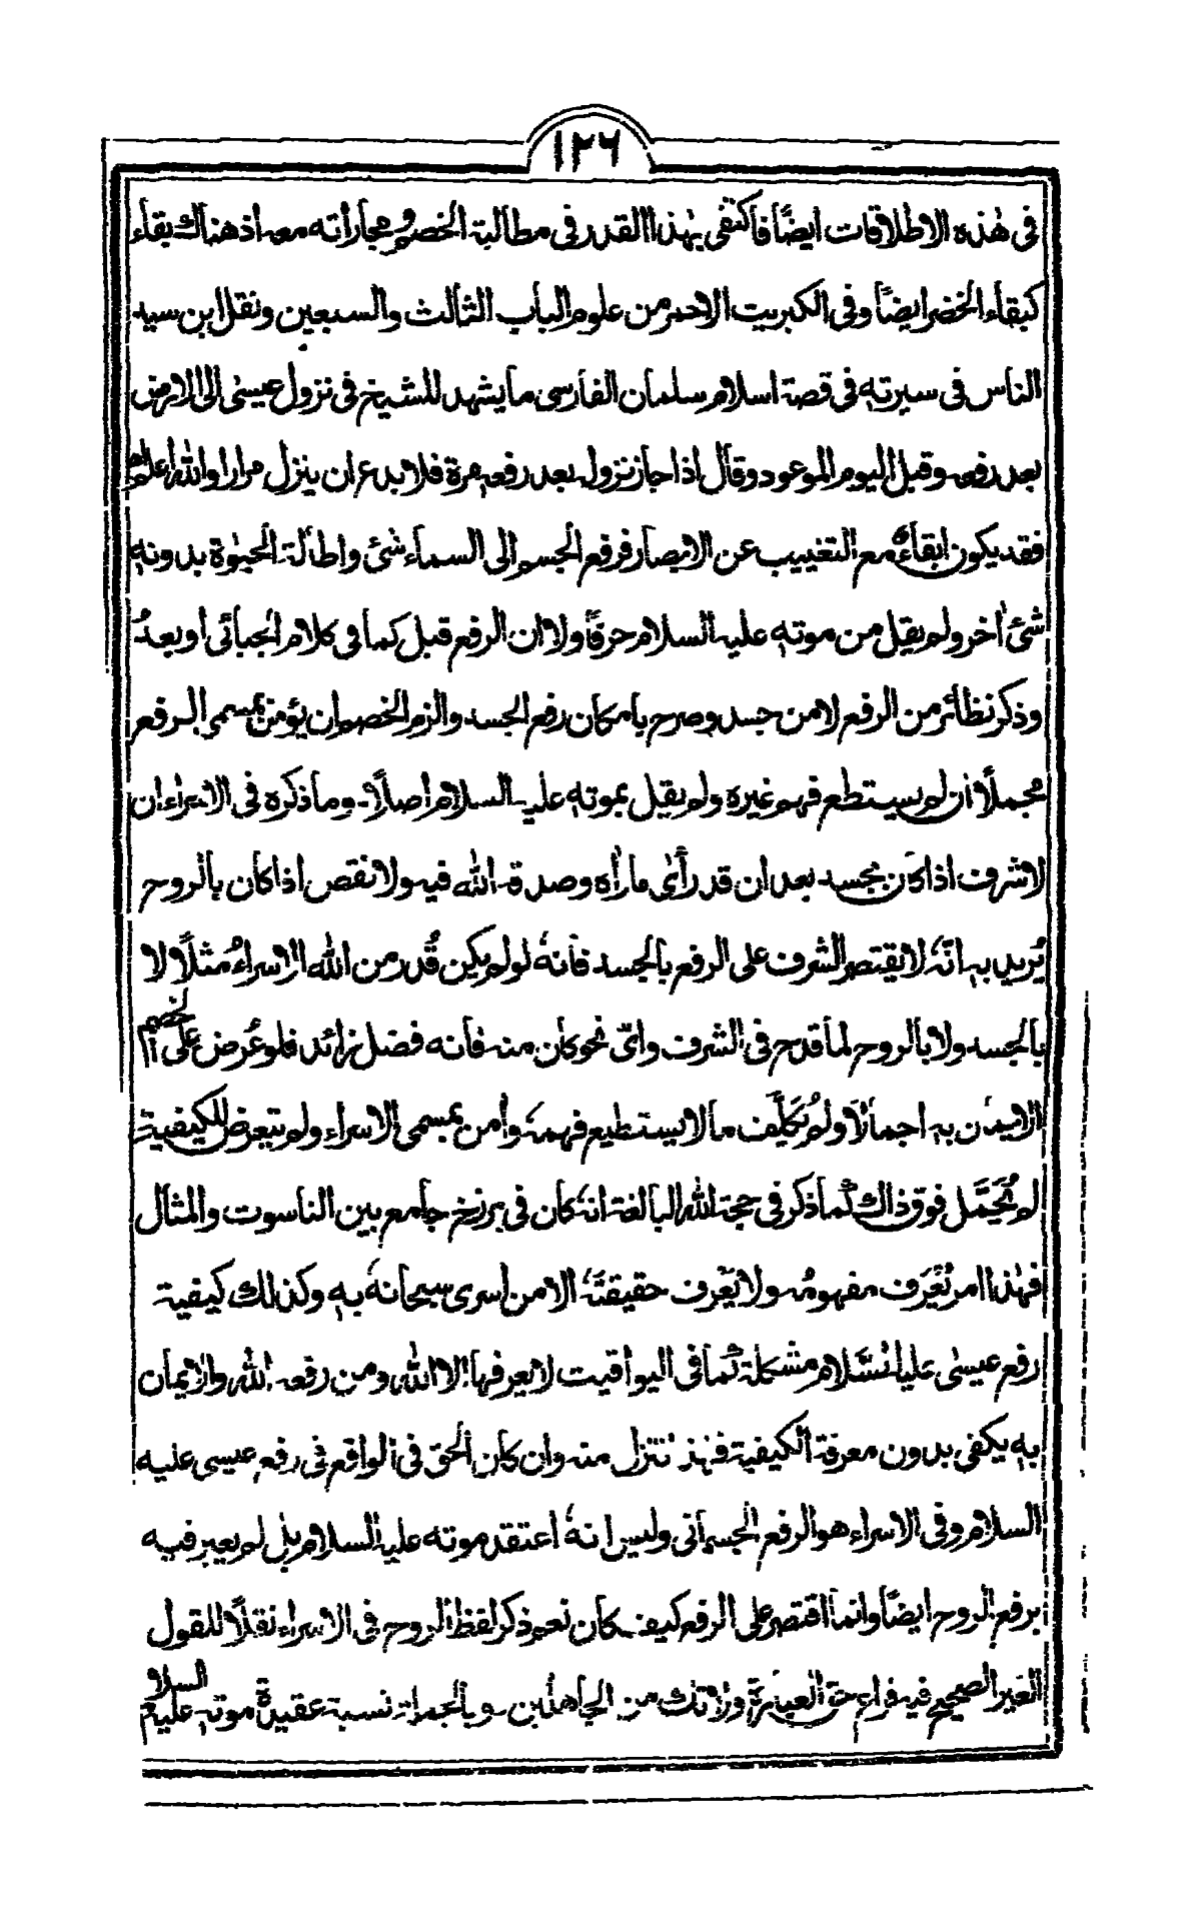 ١٢٦
فى هٰذه الاطلاقات ايضًا فاكتفى بهٰذا القدر فى مطالبة الخصم ومجاراته معه اذ هناك بقاء
كبقاء الخضر ايضًا وفى الكبريت الاحمر من علوم الباب الثالث والسبعين ونقل ابن سيد
الناس فى سيرته فى قصة اسلام سلمان الفارسى ما يشهد للشيخ فى نزول عيسٰى الى الارض
بعد رفعه وقبل اليوم الموعود وقال اذا جاز نزوله بعد رفعه مرة فلا بدع ان ينزل مرارا والله اعلم اه
فقد يكون ابقاءه مع التغييب عن الابصار فرفع الجسم الى السماء شئ واطالة الحيٰوة بدونه
شئ اٰخر ولم يقل من موته عليه السلام حرفًا ولا ان الرفع قبل كما فى كلام الجبائى او بعدُ
وذكر نظائر من الرفع لا من جسد وصرح بامكان رفع الجسد والزم الخصم ان يؤمن بمسمى الرفع
مجملًا ان لم يستطع فهم غيره ولم يقل بموته عليه السلام اصلًا وما ذكره فى الاسراء ان
لا شرف اذا كان بجسد بعد ان قد رأى ما رأٰه وصدقه الله فيه ولا نقص اذا كان بالروح
يُريد به انّهٗ لا يقتصر الشرف على الرفع بالجسد فانهٗ لو لم يكن قُدر من الله الاسراءُ مثلًا لا
بالجسد ولا بالروح لما قدح فى الشرف واىّ نحو كان منه فانه فضل زائد فلو عُرض على الخصم
الايمان به اجمالًا ولم يُكلَّف ما لا يستطيع فهمهٗ وأمن بمسمى الاسراء ولم يتعرض للكيفية
لم يُحَمَّل فوق ذالك كما ذكر فى حجة الله البالغة انهٗ كان فى برزخ جامع بين الناسوت والمثال
فهٰذا امر يُعرَف مفهومُه ولا يُعرف حقيقتَهٗ الا من اسرى سبحانهٗ به وكذلك كيفية
رفع عيسٰى عليه السَّلام مشكلة كما فى اليواقيت لا يعرفها الا الله ومن رفعه الله والايمان
به يكفى بدون معرفة الكيفية فهٰذ تنزل منه وان كان الحق فى الواقع فى رفع عيسى عليه
السلام وفى الاسراء هو الرفع الجسمانى وليس انهٗ اعتقد موته عليه السلام بل لم يعبر فيه
برفع الروح ايضًا وانما اقتصر على الرفع كيف كان نعم ذكر لفظ الروح فى الاسراء نقلًا للقول
الغير الصحيح فيه فراع حق العبارة ولا تك من الجاهلين وبالجملة نسبة عقيدة موته عليه السلام